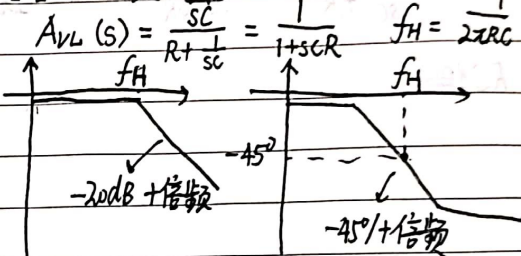 A_VL (s) = \frac{\frac{1}{sC}}{R + \frac{1}{sC}} = \frac{1}{1+sCR} f_H = \frac{1}{2πRC}
f_H f_H
-45°
-20dB 十倍频
-45°/十倍频